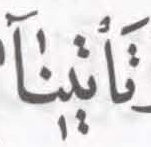 تَأْتِينَآ